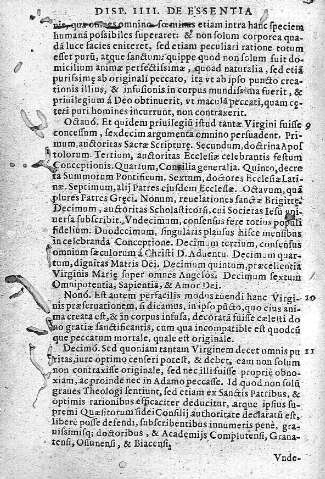 DISP. IIII. DE ESSENTIA
nis, quo omnes omnino fœminas etiam intra hanc speciem
humanã possibiles superaret: & non solum corporea qua-
dã luce facies eniteret, sed etiam peculiari ratione totum
esset purũ, atque sanctum: quippe quod non solum fuit do-
micilium animæ perfectissimæ, quoad naturalia, sed etiã
purissimę ab originali peccato, ita vt ab ipso puncto crea-
tionis illius, & infusionis in corpus mundissima fuerit, &
priuilegium á Deo obtinuerit, vt maculã peccati, quam cę-
teri puri homines incurrunt, non contraxerit.
Octauò. Et quidem priuilegiũ istud tantæ Virgini fuisse 9
concessum, sexdecim argumenta omnino persuadent. Pri-
mum, auctoritas Sacræ Scripturę. Secundum, doctrina Apos
tolorum. Tertium, auctoritas Ecclesiæ celebrantis festum
Conceptionis. Quartum, Concilia generalia. Quintò, decre
ta Summorum Pontificum. Sextum, doctores Ecclesiæ Lati-
næ. Septimum, alij Patres eiusdem Ecclesiæ. Octauum, quã
plures Patres Gręci. Nonum, reuelationes sanctæ Brigittę.
Decimum, auctoritas Scholasticorũ, cui Societas Iesu mi-
nerua subscribit. Vndecimum, consensus fere totius populi
fidelium. Duodecimum, singularis plausus hisce mensibus
in celebranda Conceptione. Decimum tertium, consensus
omnium sæculorum á Christi D. Aduentu. Decimum quar-
tum, dignitas Matris Dei. Decimum quintum, præcelentia
Virginis Marię super omnes Angelos. Decimum sextum
Omnipotentia, Sapientia, & Amor Dei.
Nonò. Est autem perfacilis modus tuendi hanc Virgi- 10
nis præseruationem, si dicamus, in ipso pũcto, quo eius ani-
ma creata est, & in corpus infusa, decoratã fuisse cælesti do
no gratiæ sanctificantis, cum qua incompatibile est quodcũ
que peccatum mortale, quale est originale.
Decimò. Sed quoniam tantam Virginem decet omnis pu 11
ritas, iure optimo censeri potest, & debet, eam non solum
non contraxisse originale, sed nec illi fuisse propriè obno-
xiam, ac proinde nec in Adamo peccasse. Id quod non solũ
graues Theologi sentiunt, sed etiam ex Sanctis Patribus, &
optimis rationibus efficaciter deducitur, atque ipsius su-
premi Quæsitorum fidei Consilij authoritate declaratũ est,
libere posse defendi, subscribentibus innumeris penè, gra-
uissimisq; doctoribus, & Academijs Complutensi, Grana-
tensi, Ossunensi, & Biacensi.
Vnde-